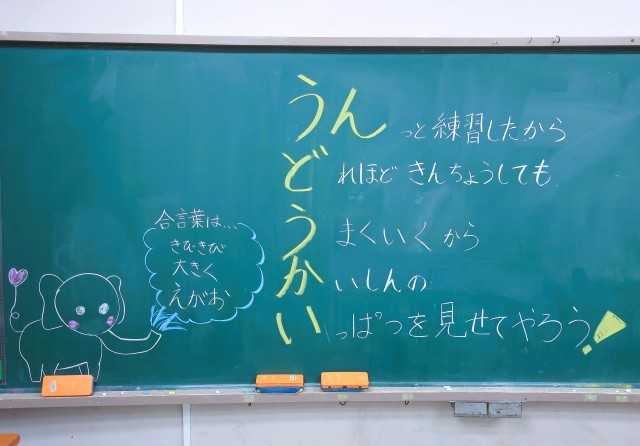 うんっと練習したから
どれほどきんちょうしても
うまくいくから
かいしんの
いっぱつを見せてやろう!
合言葉は...
きびきび
大きく
えがお